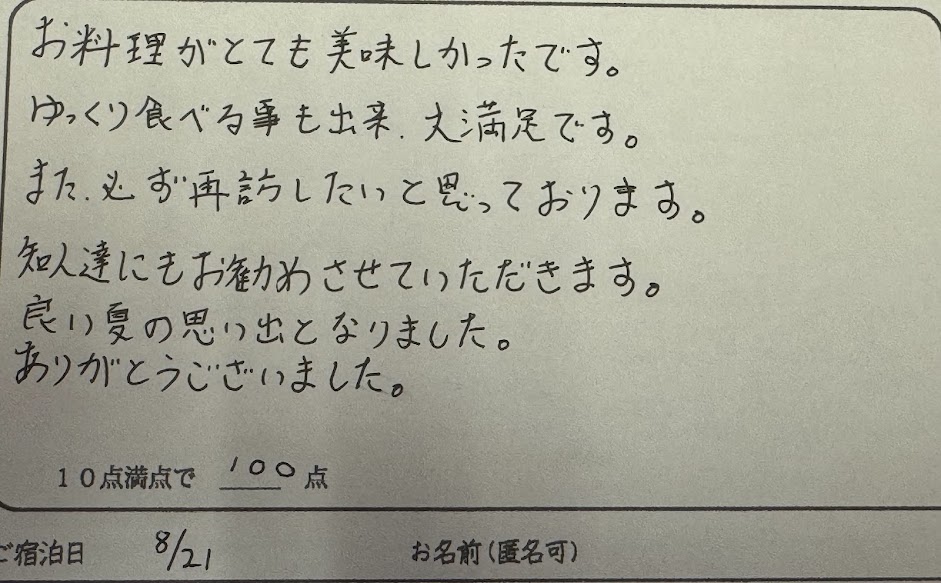 お料理がとても美味しかったです。
ゆっくり食べる事も出来、大満足です。
また、必ず再訪したいと思っております。
知人達にもお勧めさせていただきます。
良い夏の思い出となりました。
ありがとうございました。
10点満点で 100 点
ご宿泊日 8/21 お名前(匿名可)